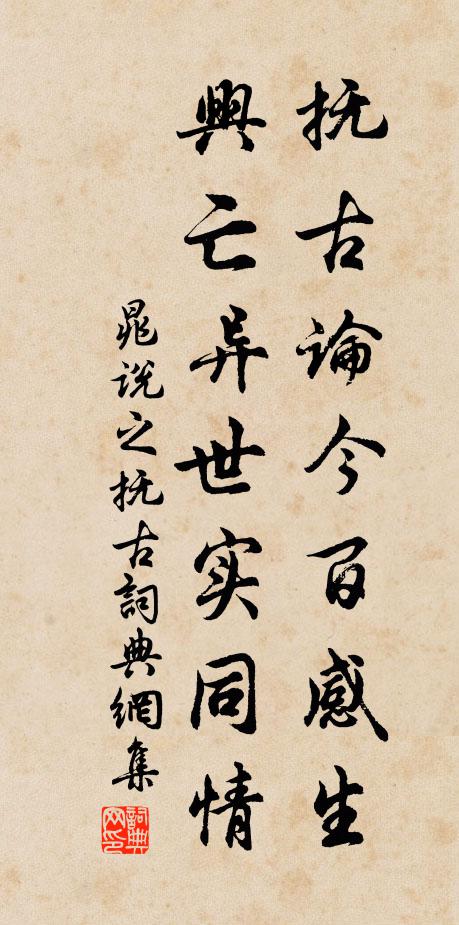 抚古論今百感生
興亡异世实同情
晁说之抚古詞典網集
詞典网印